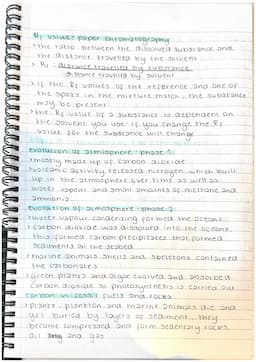 Rf values: paper chromatography
> the ratio between the dissolved substance and
the distance travelled by the solvent
> Rf = distance travelled by substance
distance travelled by solvent
> if the Rf values of the reference and one of
the spots in the mixture match, the substance
may be present
> the Rf value of a substance is dependent on
the solvent you use. if you change the Rf
value for the substance will change
evolution of atmosphere - phase 1:
> mostly made up of carbon dioxide
> volcanic activity released nitrogen, which built
up in the atmosphere over time as well as
water vapour and small amounts of methane and
ammonia
evolution of atmosphere - phase 2:
> water vapour condensing formed the oceans
> carbon dioxide was dissolved into the oceans,
this formed carbon precipitates that formed
sediments on the seabed
> marine animals shells and skeletons contained
the carbonates
> green plants and algae evolved and absorbed
carbon dioxide so photosynthesis is carried out
carbon in fossil fuels and rocks
> plants, plankton and marine animals die and
get buried by layers of sediment, they
become compressed and form sedentary rocks
oil and gas